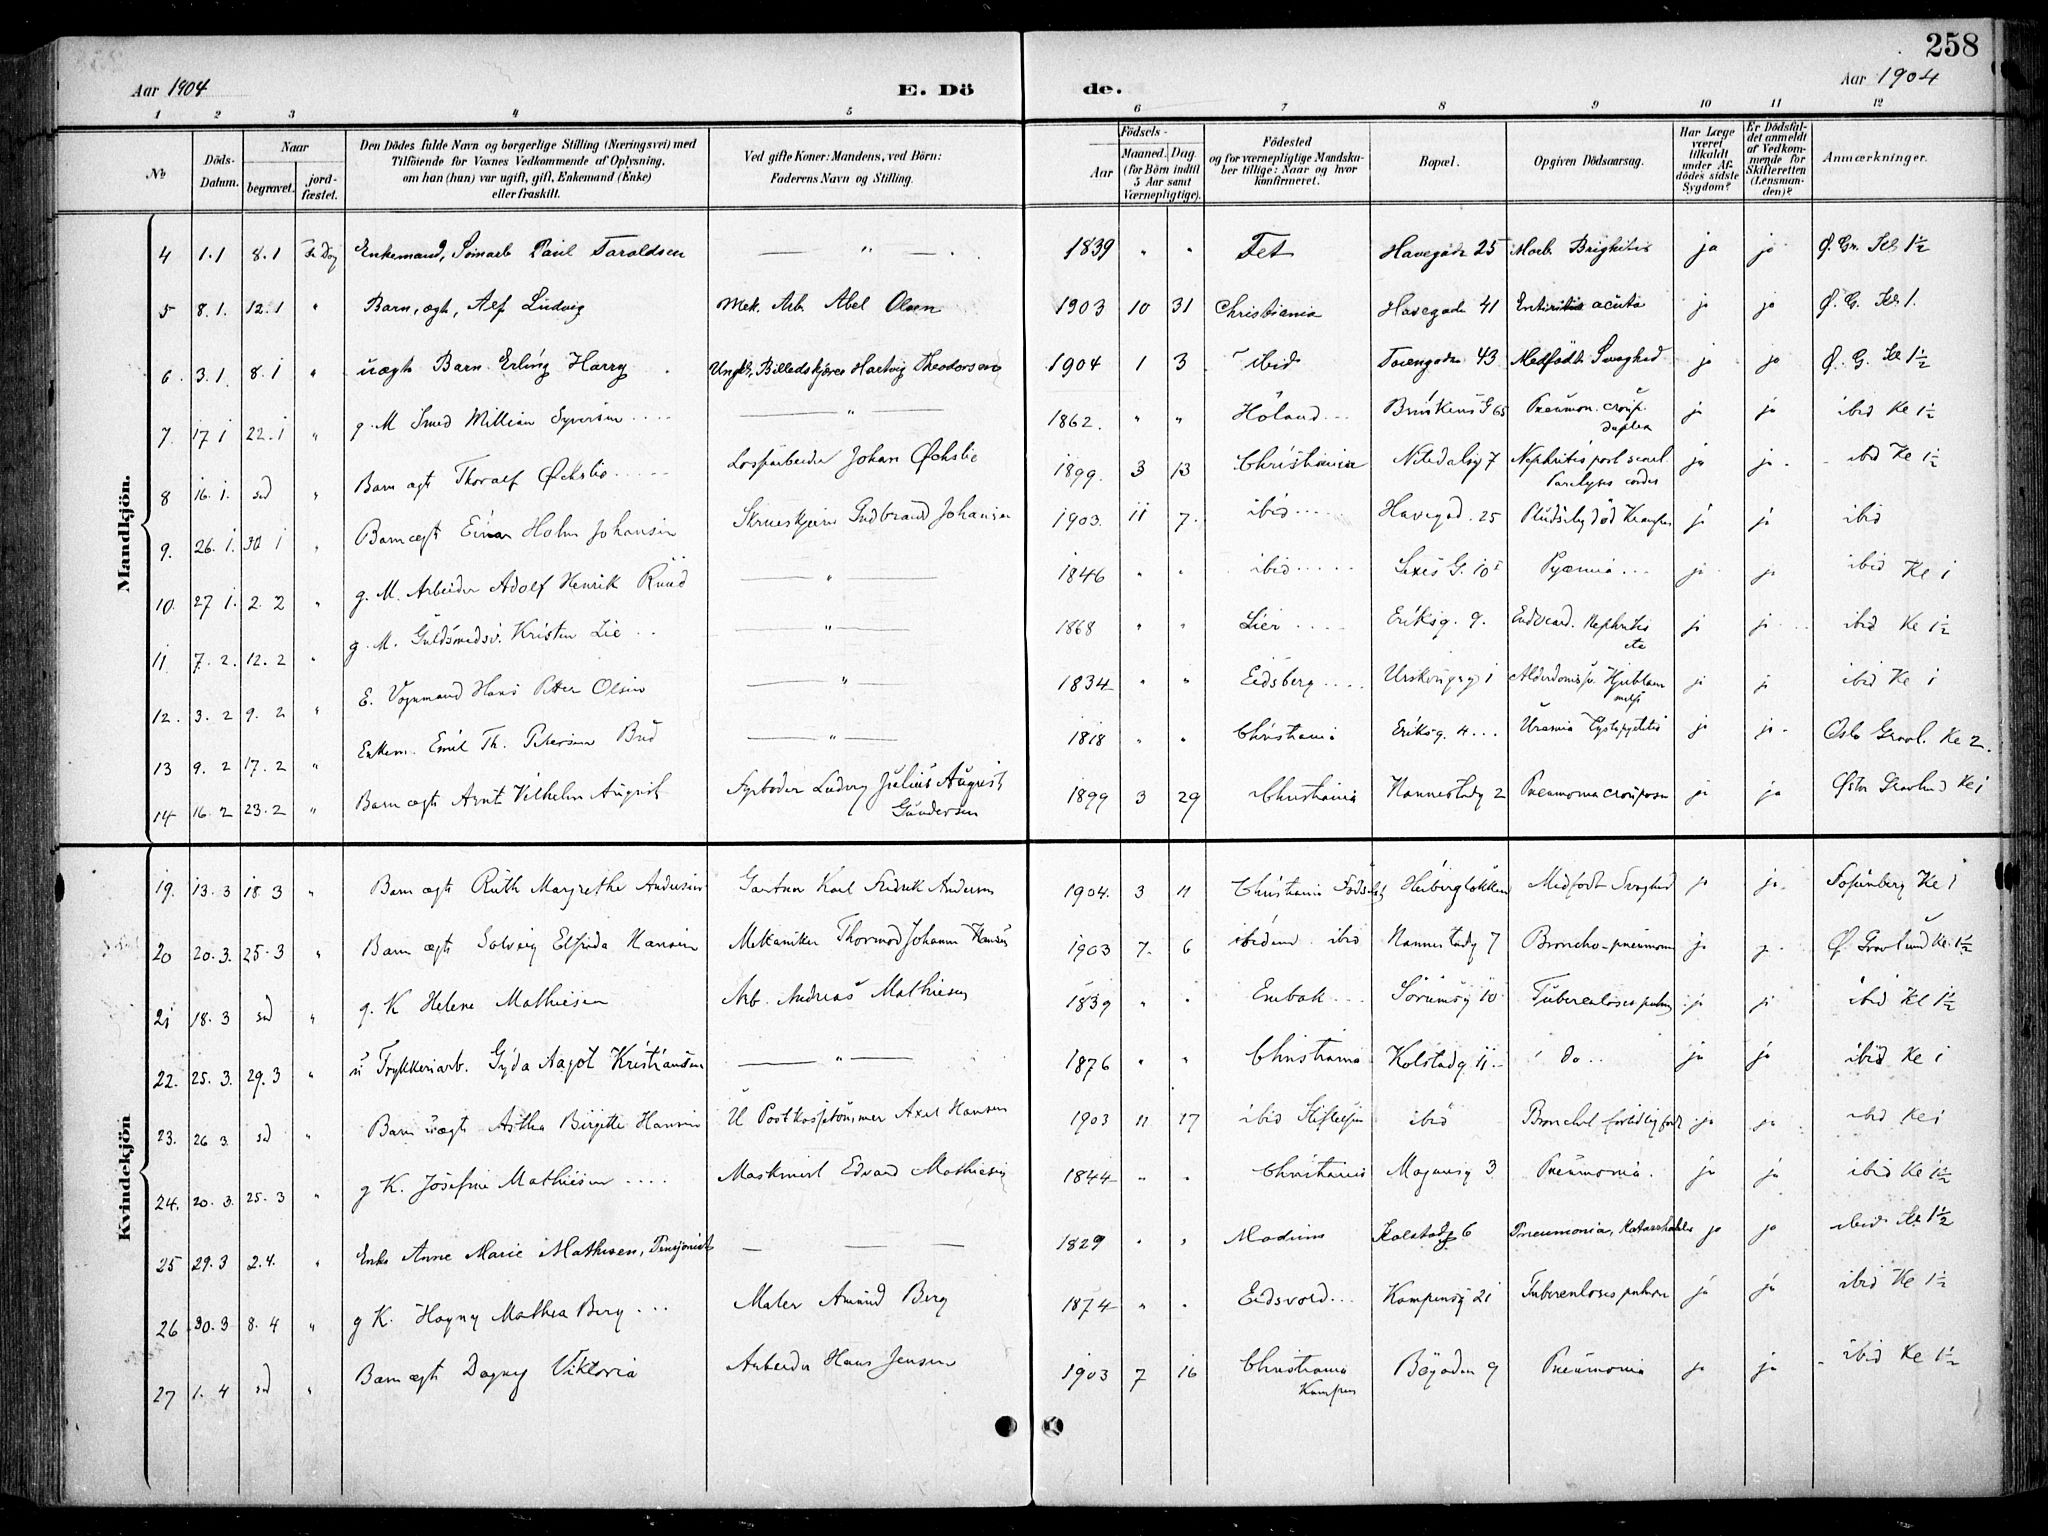 258
Aar 1904 E. Dö de. Aar 1904
1 2 3 4 5 6 7 8 9 10 11 12
No
Döds-Datum.
Naar
begravet. jord-fæstet.
Den Dödes fulde Navn og borgerlige Stilling (Næringsvei) med
Tilföiende for Voxnes Vedkommende af Oplysning,
om han (hun) var ugift, gift, Enkemand (Enke)
eller fraskilt.
Ved gifte Koner: Mandens, ved Börn:
Faderens Navn og Stilling.
Födsels-
Aar Maaned. Dag.
(for Börn indtil
5 Aar samt
Værnepligtige).
Födested
og for værnepligtige Mandska-
ber tillige: Naar og hvor
konfirmeret.
Bopæl.
Opgiven Dödsaarsag.
Har Læge
været
tilkaldt
under Af-
dödes sidste
Sygdom?
Er Dödsfal-
det anmeldt
af Vedkom-
mende for
Skifteretten
(Lensman-
den)?
Anmærkninger.
Mandkjön.
4 1.1 8.1 Enkemand, Paul Taraldsen — " — 1839 " " Fet Havegade 25 Morb. Brightii ja ja Ø. Gr. Kl 1½
5 8.1. 12.1 " Barn, ægte, Alf Ludvig Mek. Arb. Abel Olsen 1903 10 31 Christiania Havegade 41 acuta ja ja Ø. G. Kl 1.
6. 3.1. 8.1 " uægte Barn Erling Harry Ungk. Billedskjærer Hartvig Theodorsen 1904 1 3 ibid Tøiengade 43 Medfödt Svaghed ja ja Ø. G. Kl 1½
7. 17 1 22.1 " g. M Smed William Syversen — " — 1862. " " Höland 65 Pneumon. croup. duplex ja ja ibid Kl 1½
8 16.1. sd " Barn ægte Thoralf Øchslie Johan Øchslie 1899. 3 13 Christiania Nitedalsg 7 Nephritis post scarl. Paralysis cordis ja ja ibid Kl 1½
9. 26.1. 30 1 " Barn ægte Einar Holm Johansen Gudbrand Johansen 1903. 11 7. ibid Havegad. 25 ja ja ibid
10. 27 1. 2. 2 " g. M. Arbeider Adolf Henrik Ruud — " — 1846 " " ibid Pyæmia ja ja ibid Kl 1
11 7. 2. 12. 2 " g. M. Guldsmedsv. Kristen Lie — " — 1868 " " Lier Eriksg. 9. Endocard. Nephritis etc ja ja ibid Kl 1½
12. 3. 2 9. 2 " E. Vognmand Hans Petter Olsen — " — 1834 " " Eidsberg Urskougsg 1 ja ja ibid Kl 1
13 9. 2 17. 2 " Enkem. Emil Th. Petersen Bud — " — 1818 " " Christiania Eriksg. 4 Uræmia ja ja Oslo Gravl. Kl 2.
14 16. 2 23. 2 " Barn ægte Arnt Vilhelm August Fyrböder Ludvig Julius August Gundersen 1899 3 29 Christiania Nannestadg 2 Pneumonia crouposa ja ja Østre Gravlund Kl 1
Kvindekjön
19. 13. 3 18. 3 " Barn ægte Ruth Margrethe Andersen Gartner Karl Fredrik Andersen 1904. 3 11 Christiania Heiberglökken Medfödt Svaghed ja ja Kl 1
20 20. 3. 25. 3 " Barn ægte Solveig Elfrida Hansen Mekaniker Thormod Johann Hansen 1903 7. 6 ibid Nannestadg 7 Broncho-pneumoni ja ja Ø. Gravlund Kl. 1½
21 18. 3 sd " g. K Helene Mathiesen Arb. Andreas Mathiesen 1839 " " Enebak Sörumsg 10 Tuberculosis pulm ja ja ibid Kl 1½
22. 25. 3. 29. 3 " u Trykkeriarb. Gyda Aagot Kristiansen — " — 1876 " " Christiania Kolstadg. 11 do ja ja ibid Kl 1
23. 26 3. sd " Barn uægte Astha Birgitte Hansen U Axel Hansen 1903 11 17 ibid Stiftelsen ibid ja ja ibid Kl 1
24. 20. 3. 25. 3 " g K. Josefine Mathiesen Maskinist Edvard Mathiesen 1844 " " Christiania 3 Pneumonia. ja ja ibid Kl 1½
25 29. 3 2.4. " Enke Anne Marie Mathisen, Pensjonist — — — 1829 " " Modum Kolstadg 6 Pneumonia, Katarrhalis ja ja ibid Kl 1½
26 30. 3 8. 4 " g K. Hagny Mathea Berg Maler Amund Berg 1874 " " Eidsvold Kampensg 21 Tuberculosis pulm ja ja ibid Kl 1½
27 1. 4 sd " Barn ægte Dagny Viktoria Arbeider Hans Jensen 1903 7 16 Christiania Kampen Bögaden 9 Pneumonia ja ja ibid Kl 1½